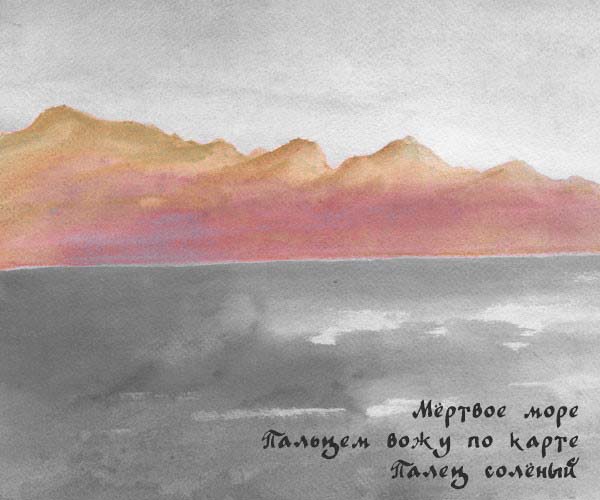 Мёртвое море
Пальцем вожу по карте
Палец солёный